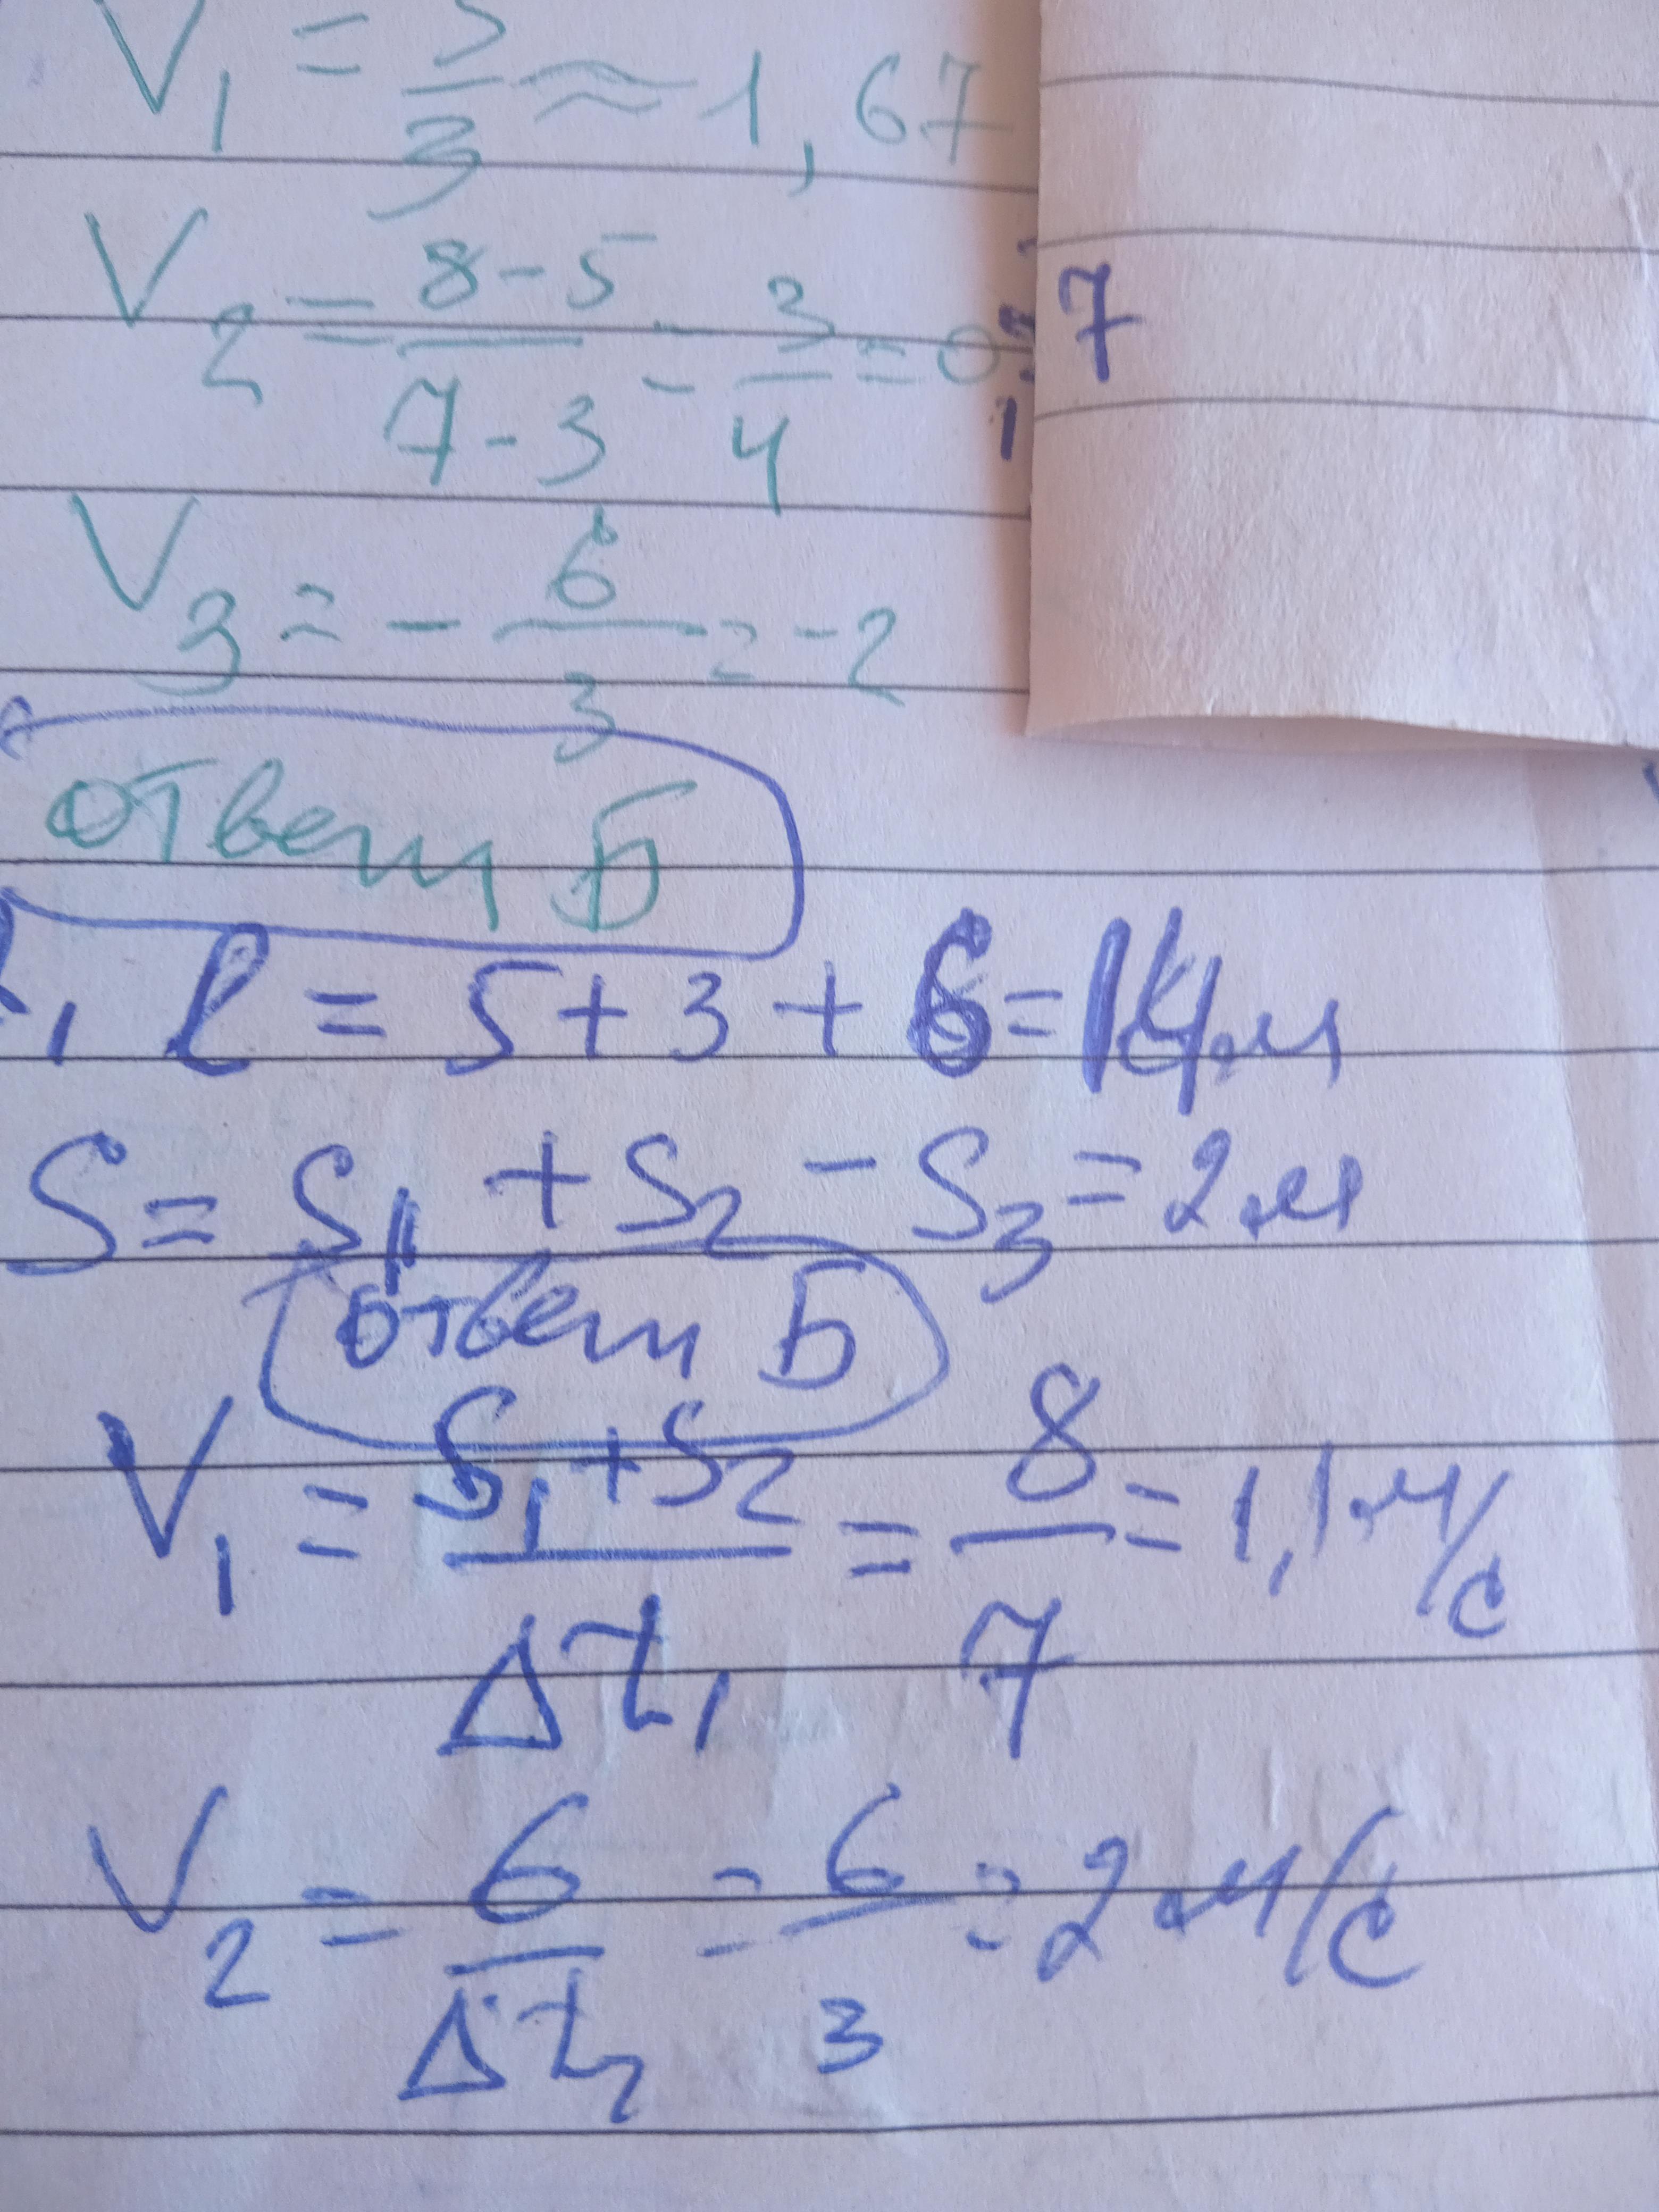 V₁ = 5/3 ≈ 1,67
V₂ = (8-5)/(7-3) = 3/4 = 0
7
1
V₃ = -6/3 = -2
ответ Б
l = 5+3+6=14м
S = S₁ + S₂ - S₃ = 2м
ответ Б
V₁ = (S₁+S₂)/Δt₁ = 8/7 = 1,1м/с
V₂ = 6/Δt₂ = 6/3 = 2м/с